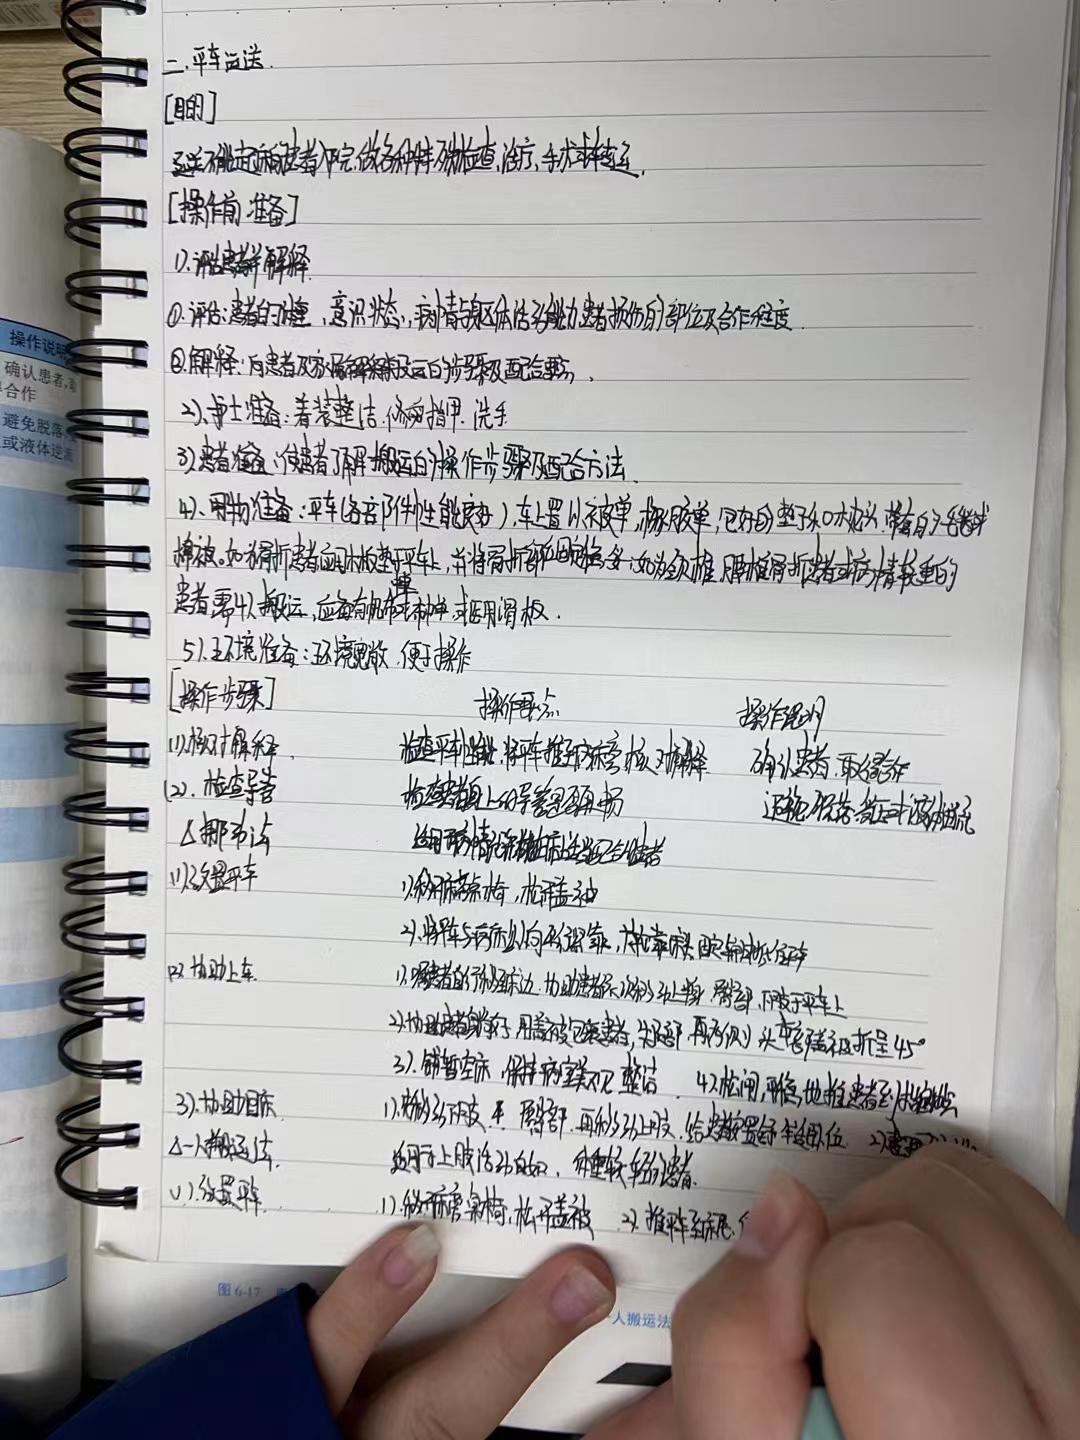 操作说明
确认患者,取
得合作
避免脱落
或液体逆流
二.平车运送.
[目的]
运送不能起床的患者入院,做各种特殊检查,治疗,手术或转运.
[操作前准备]
1).评估患者并解释.
①.评估:患者的体重,意识状态,病情与躯体活动能力患者损伤的部位及合作程度.
②.解释:向患者及家属解释搬运的步骤及配合要点.
2).护士准备:着装整洁.修剪指甲.洗手.
3).患者准备:使患者了解搬运的操作步骤及配合方法.
4).用物准备:平车(各部件性能良好),车上置以被单,橡胶单,包好的垫子和枕头.带套的毛毯或
棉被。如为骨折患者应有木板垫于平车上,并将骨折部位固定稳妥;如为颈椎、腰椎骨折患者或病情较重的
患者需4人搬运,应备有帆布中单或布中单.或医用滑板.
5).环境准备:环境宽敞.便于操作
[操作步骤] 操作要点 操作说明
(1).核对解释. 检查平车性能,将平车推至病床旁,核对解释 确认患者.取得合作
(2).检查导管 检查患者身上的导管是否通畅 避免脱落、受压或液体逆流
△挪动法 适用于病情许可能在床上配合的患者
(1).放置平车 1).移开床旁桌椅,松开盖被
2).将平车与病床纵向平行紧靠,大轮靠床头
(2).协助上车. 1).嘱患者自行移至床边.协助患者依次移动上半身、臀部、下肢于平车上
2).协助患者躺好,用盖被包裹患者,先足部,再两侧,头部盖被折呈45°
3).铺暂空床,保持病室美观、整洁. 4).松闸,平稳地推患者至
3).协助回床 1).先移动下肢、臀部.再移动上肢.给患者安置舒适卧位. 2).
△一人搬运法. 适用于上肢活动自如,体重较轻的患者.
(1).放置平车 1).移开床旁桌椅,松开盖被 2).推平车至床尾,
图6-17
一人搬运法